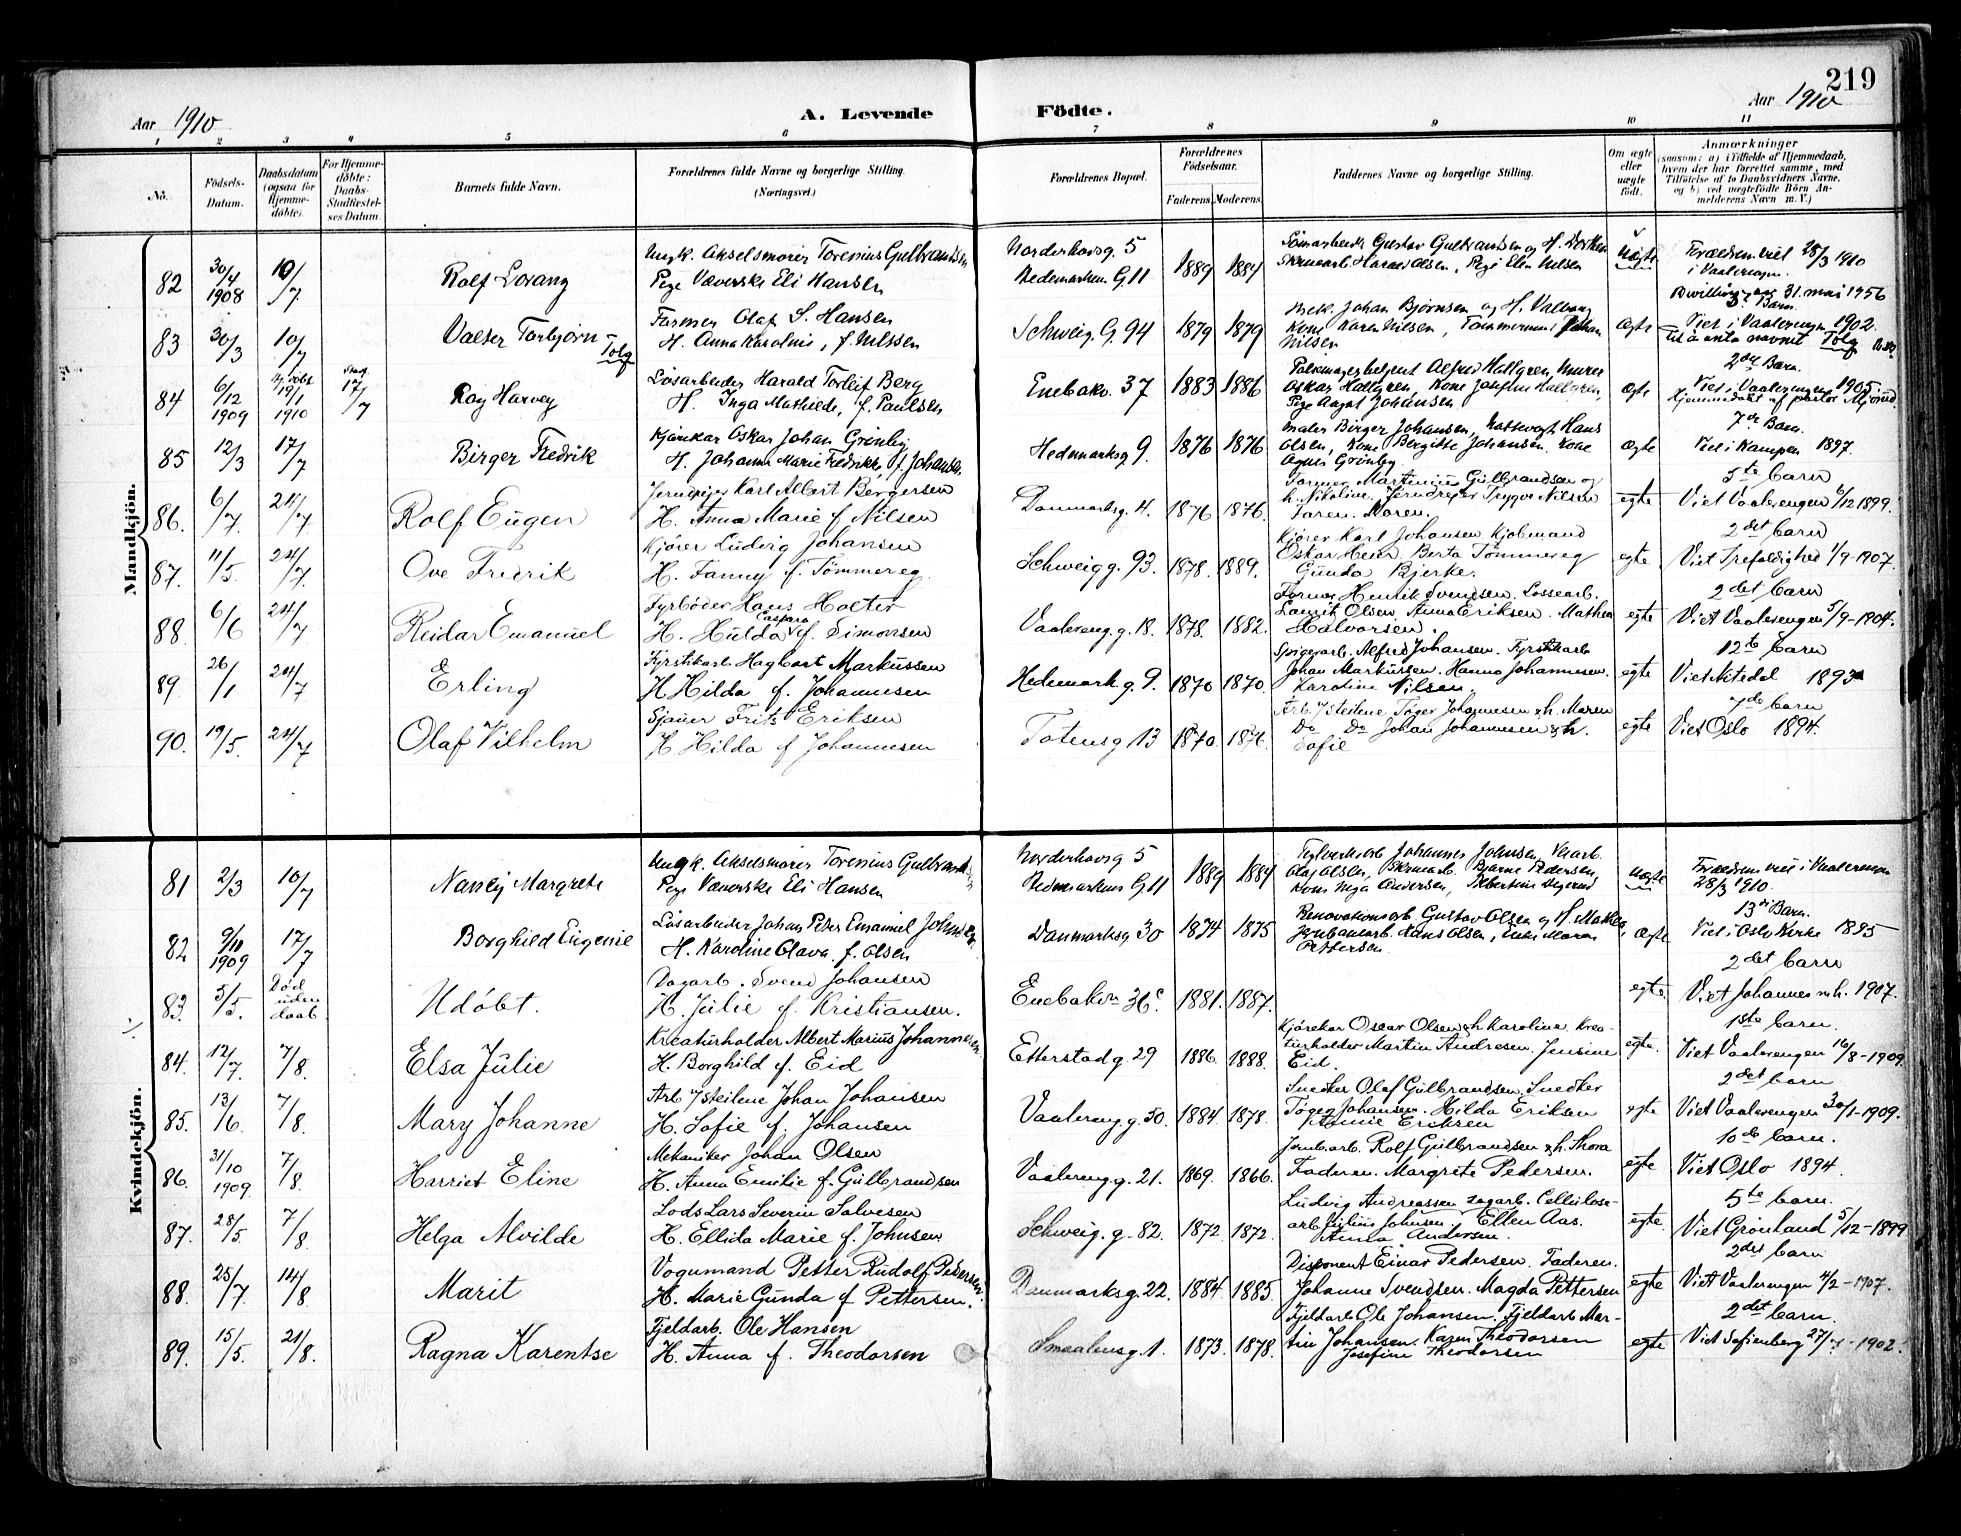 219
Aar 1910
A. Levende Födte.
Aar 1910
1 2 3 4 5 6 7 8 9 10 11
No.
Födsels-Datum.
Daabsdatum (ogsaa for Hjemme-döbte).
For Hjemme-döbte: Daabs-Stadfæstel-ses Datum
Barnets fulde Navn.
Forældrenes fulde Navne og borgerlige Stilling. (Næringsvei.)
Forældrenes Bopæl.
Forældrenes Födselsaar.
Faderens. Moderens.
Faddernes Navne og borgerlige Stilling.
Om ægte eller uægte födt.
Anmærkninger
(saasom: a) i Tilfælde af Hjemmedaab, hvem der har forrettet samme, med Tilföielse af to Daabsvidners Navne, og b) ved uægtefödte Börn An-melderens Navn m. V.)
Mandkjön.
82 30/4 1908 10/7 Rolf Lorang
Ungk. Akselsmører Torenius Gulbrandsen
Pige Væverske Eli Hansen
Norderhovsg. 5
Hedemarken G. 11 1889 1884
Gustav Gulbrandsen og H.
Harald Olsen, Pige Elen Nilsen
uægte
Forældren viet 28/3 1910
i Vaalerengen.
83 30/3 10/7 Valter Torbjørn Tolg
Formen Olaf S. Hansen
H. Anna Karolmie, f. Nilssen
Schweig. G. 94 1879 1879
Mek. Johan Bjørnsen og H. Valborg
Kone Karen Nilsen, Tømmermand Johan
Nilsen
ægte
Bevilling av 31. mai 1956
Barn
Viet i Vaalerengen 1902.
til å anta navnet Tolg
84 6/12 1909 19/1 1910 17/7 Roy Harvey
Løsarbeider Harald Torleif Berg
H. Inga Mathilde, f. Paulsen
Enebakv. 37 1883 1886
Alfred Hallgren, Murer
Oskar Hallgren, Kone Josefine Hallgren,
Pige Aagot Johansen
ægte
2det Barn.
Viet i Vaalerengen 1905
Hjemmedøbt af pastor Mjøsund.
85 12/3 17/7 Birger Fredrik
Kjørekar Oskar Johan Grønby
H. Johanne Marie Fredrikke, f. Johansen
Hedemarksg. 9. 1876 1876
Maler Birger Johansen, Nattevagt Hans
Olsen, Kone Bergitte Johansen, Kone
Agnes Grønby
ægte
7de Barn.
Viet i Kampen 1897.
86. 6/7 24/7 Rolf Eugen
Jerndreier Karl Albert Bergersen
H. Anna Marie f. Nilsen
Danmarksg. 4. 1876 1876.
Formen Martinius Gulbrandsen og
h. Nikoline. Jerndreier Trygve Nilsen
Faren. Moren.
egte
5te barn
Viet Vaalerengen 6/12 1899.
87. 11/5. 24/7 Ove Fredrik
Kjører Ludvig Johansen
H. Fanny f. Tömmereg.
Schweigg. 93. 1878. 1889.
Kjører Karl Johansen Kjøbmand
Oskar Berta Tömmereg
Gunda Bjerke.
egte
2det barn
Viet Trefoldighed 1/9-1907.
88 6/6 24/7 Reidar Emanuel
Fyrbøder Hans Holter
H. Hulda Caspara f. Simonsen
Vaalereng.g. 18. 1878. 1882.
Former Henrik Svendsen. Løssearb.
Laurits Olsen. Anna Eriksen. Mathea
Halvorsen.
egte
2det barn
Viet Vaalerengen 5/9-1904.
89 26/1 24/7 Erling
Fyrstikarb. Hagbart Markussen
H. Hilda f. Johannesen
Hedemark.g. 9. 1870 1870.
Spigerarb. Alfred Johansen. Fyrstikarb
Johan Markussen. Hanna Johannesen.
Karoline Nilsen.
egte
12te barn
Viet 1893
90. 19/5. 24/7 Olaf Vilhelm
Sjauer Frits Eriksen
H. Hilda f. Johannesen
Totensg 13 1870. 1876.
Arb. Ysteilene Tøger Johannesen & h. Maren
Do Do Johan Johannesen & h.
Sofie
egte
7de barn
Viet Oslo 1894.
Kvindekjön.
81 2/3 10/7 Nancy Margrete
Ungk. Akselsmører Torenius Gulbrandsen
Pige Væverske Eli Hansen
Norderhovsg 5
Hedemarkens G. 11 1889 1884
Teglverksarb Johannes Johnsen,
Olaf Olsen, Bjarne Pedersen,
Kone Inga Andersen, Albertine
uægte
Forældren viet i Vaalerengen
28/3 1910.
82 9/11 1909 17/7 Borghild Eugenie
Løsarbeider Johan Peder Emanuel Johnsen
H. Karoline Olava, f. Olsen
Danmarksg 30 1874 1875
Renovationsarb. Gustav Olsen og H. Mathea,
Hans Olsen, Enke Maren
Pettersen
ægte
13de Barn.
Viet i Oslo Kirke 1895
83. 5/5. Død uden daab. Udöbt.
Dagarb. Svend Johansen
H. Julie f. Kristiansen.
Enebakvn 36c 1881. 1887.
egte.
2det barn
Viet Johannes m.h. 1907.
84. 12/7. 7/8. Elsa Julie
Kreaturholder Albert Marius Johannesen.
H. Borghild f. Eid
Etterstadg. 29 1886. 1888.
Kjørekar Oscar Olsen & h Karoline. Krea-
turholder Martin Andresen. Jensine
Eid.
egte.
1ste barn.
Viet Vaalerengen 16/8-1909.
85. 13/6. 7/8. Mary Johanne
Arb. Ysteilene Johan Johansen
H. Sofie f. Johansen
Vaalereng.g. 30. 1884. 1878.
Snedker Olaf Gulbrandsen. Snedker
Tøger Johansen. Hilda Eriksen
Annie Eriksen
egte
2det barn
Viet Vaalerengen 30/1-1909.
86. 31/10 1909. 7/8. Harriet Eline
Mekaniker Johan Olsen
H. Anna Emilie f. Gulbrandsen
Vaalereng.g. 21. 1869. 1866.
Jernbarb. Rolf Gulbrandsen & h. Thora
Faderen. Margrete Pedersen.
egte
10de barn.
Viet Oslo 1894.
87. 28/5 7/8. Helga Alvilde
Lods Lars Severin Salvesen
H. Ellida Marie f. Johnsen
Schweig. g. 82. 1872. 1872.
Ludvig Andreassen Dagarb. Cellulose-
arb Julius Johnsen. Ellen Aas.
Anna Andersen.
egte.
5te barn.
Viet Grønland 5/12-1899
88. 25/7. 14/8. Marit
Vognmand Petter Rudolf Pedersen.
H. Marie Gunda f Pettersen.
Danmarksg. 22. 1884. 1885.
Disponent Einar Pedersen. Faderen.
Johanne Svendsen. Magda Pettersen
egte
2det barn
Viet Vaalerengen 4/2-1907.
89. 15/5. 21/8. Ragna Karentse
Fjeldarb. Ole Hansen
H. Anna f. Theodorsen
Smaalensg. 1. 1873. 1878.
Fjeldarb Ole Johansen. Fjeldarb Mar-
tin Johansen. Karen Theodorsen
Josefine Theodorsen
egte
2det barn.
Viet Sofienberg 1902.